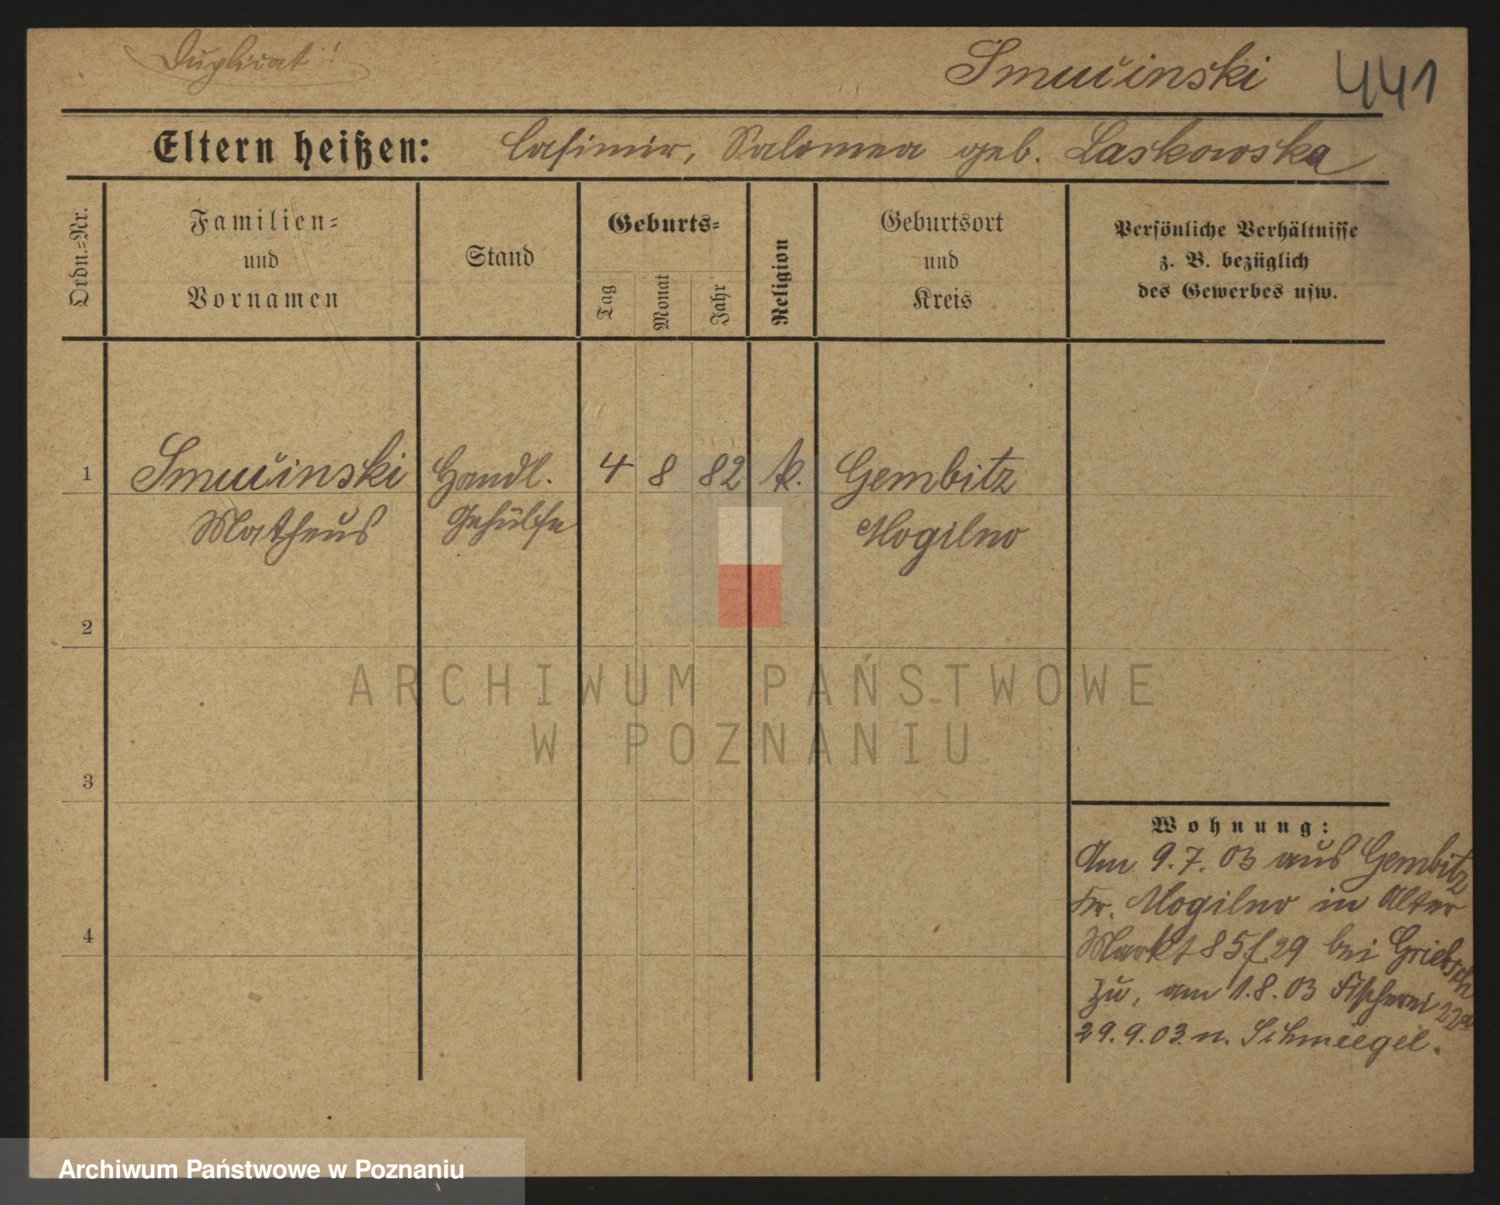 Duplicat!
Smuczinski 441
Eltern heißen: Casimir, Salomea geb. Laskowska
Ordn.=Nr.
Familien=
und
Vornamen
Stand
Geburts=
Tag
Monat
Jahr
Religion
Geburtsort
und
Kreis
Persönliche Verhältnisse
z. B. bezüglich
des Gewerbes usw.
1 Handl. 4 8 82 k. Gembitz
Matheus Gehülfe Mogilno
2
3
4
Wohnung:
Am 9.7.03 aus Gembitz
Kr. Mogilno in Alter
Markt 85/29 bei Griebsch
zu, am 1.8.03 Fischerei 22a
29.9.03 n. Schmiegel.
ARCHIWUM PAŃSTWOWE
W POZNANIU
Archiwum Państwowe w Poznaniu